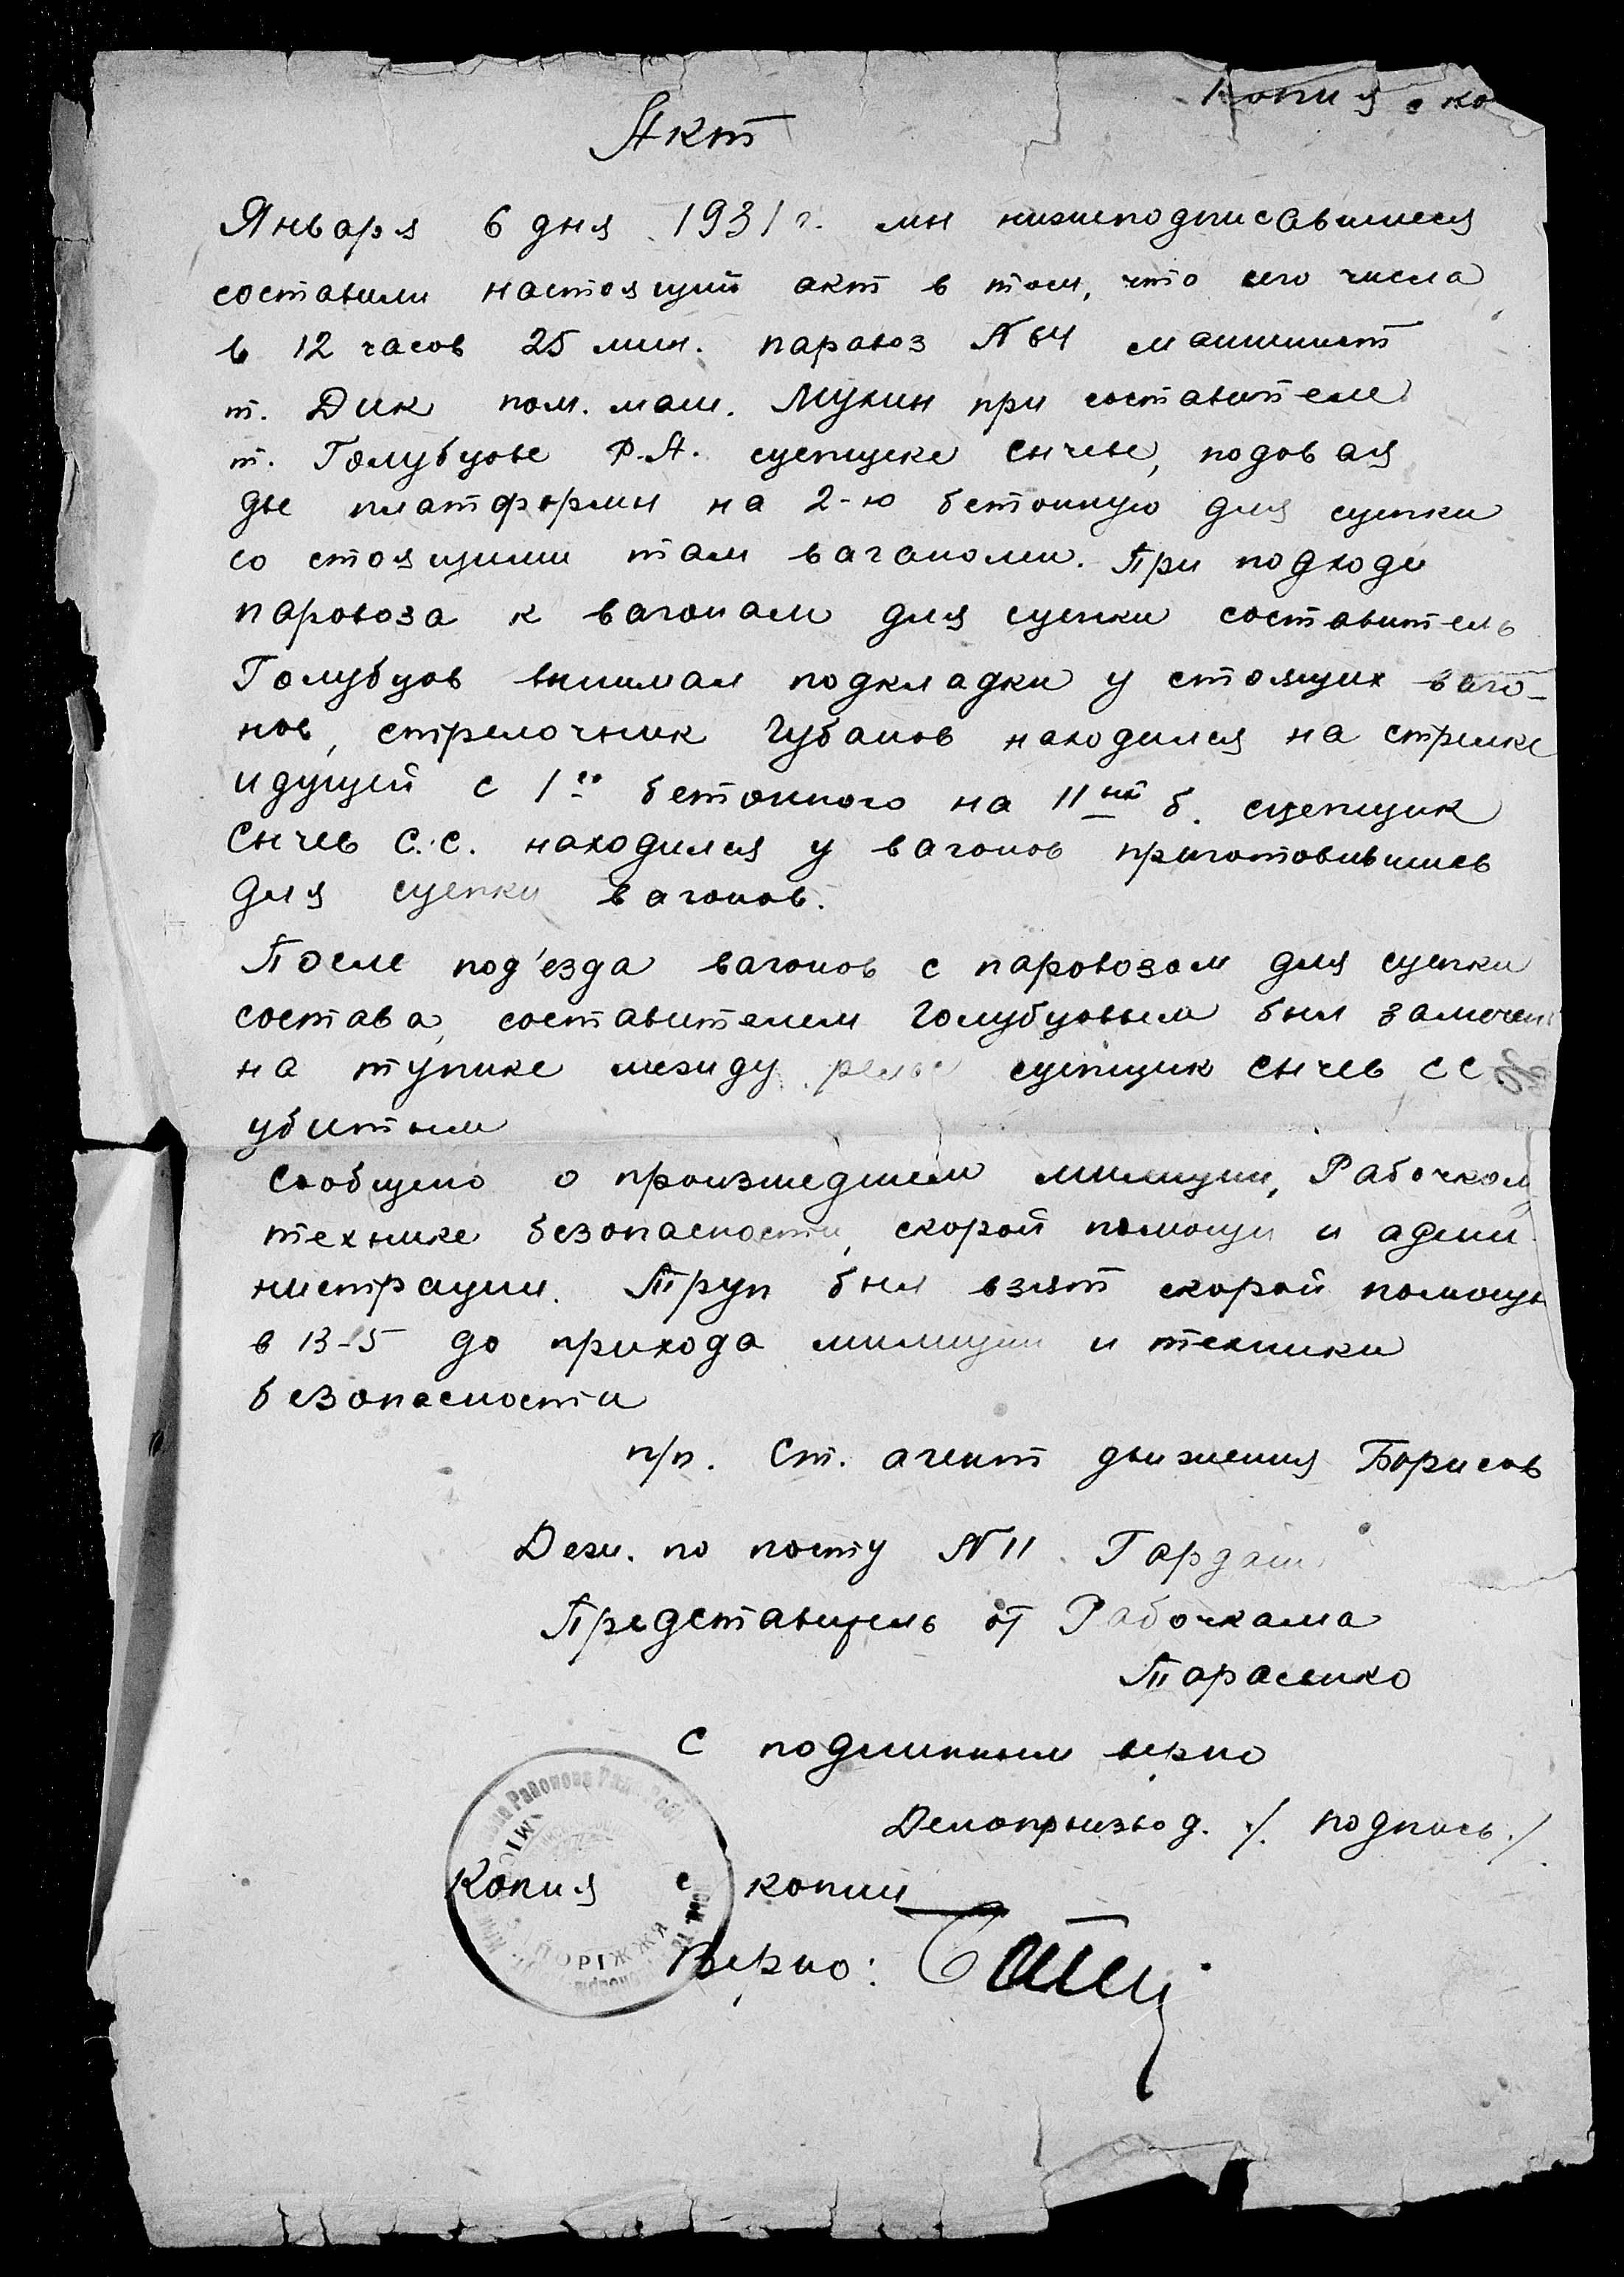 Копия с ко
Акт
Января 6 дня 1931 г. мы нижеподписавшиеся
составили настоящий акт в том, что сего числа
в 12 часов 25 мин. паравоз N 64 машинист
т. Дик пом. маш. Мухин при составителе
т. Голубцове Ф.А. сцепщике Сычеве, подовая
две платформы на 2-ю бетонную для сцепки
со стоящими там ваганоми. При подходе
паровоза к вагонам для сцепки составитель
Голубцов вынимал подкладки у стоящих ваго-
нов, стрелочник Губанов находился на стрелке
идущей с 1го бетонного на 11ый б. сцепщик
Сычев С.С. находился у вагонов приготовившись
для сцепки вагонов.
После под'езда вагонов с паровозом для сцепки
состава, составителем Голубцовым был замечен
на тупике между рельс сцепщик Сычев С С
убитым
Сообщено о происшедшем милиции, Рабочком,
технике безопасности, скорой помощи и адми-
нистрации. Труп был взят скорой помощи
в 13-15 до прихода милиции и техники
безопасности
п/п. Ст. агент движения Борисов
Деж. по посту N 11 Гардаш
Представитель от Рабочкома
Тарасенко
С подлинным верно
Делопроизвод. /. подпись ./.
Копия с копии
Верно:
Районова Рада
ПОРІЖЖЯ